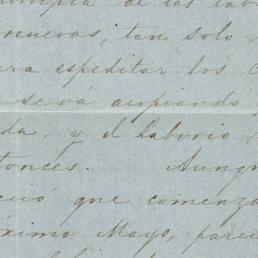 de las lab
nuevas, tan solo
ra espeditar los
se vá
da, y el laborio
tonces. Aunq
ció que comenza
óximo Mayo, parec